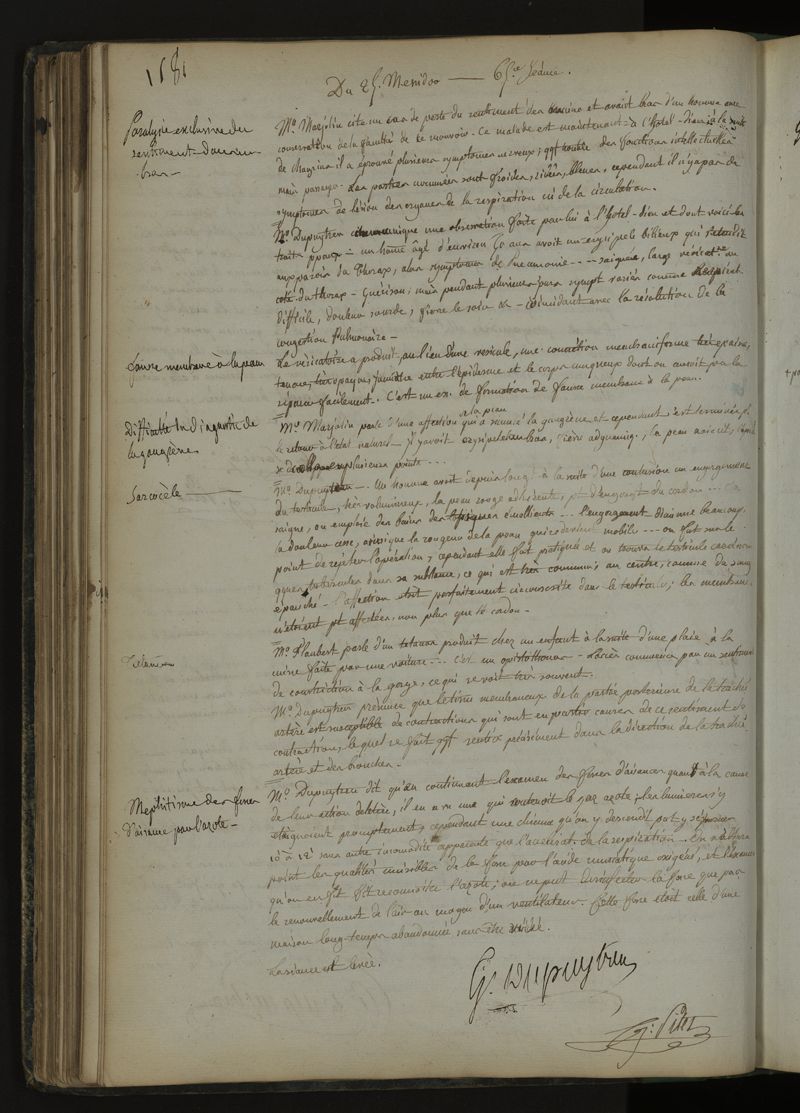 158
Du 25. Messidor —— 65.e séance.
Paralysie exclusive du
sentiment d'un
bras —
Mr. Marjolin cite un cas de perte du sentiment des mains et avant bras d'un homme avec
conservation de la faculté de le mouvoir. Ce malade est maintenant à l'hotel-Dieu; à la suite
de chagrins il a éprouvé plusieurs symptomes nerveux; qqf trouble des fonctions intellectuelles
mais passager. Les parties sont froides, livides, bleues, cependant il n'y a pas de
symptomes de lésion des organes de la respiration ni de la circulation.
Mr. Dupuytren communique une observation faite par lui à l'hotel-Dieu et dont voici les
traits ppaux = un homme âgé d'environ 50 ans avoit un erysipele bilieux qui
aux parois du Thorax, alors symptomes de Pneumonie - - - - saignée, large vésicatoire au
coté du thorax - Guérison; mais pendant plusieurs jours sympt comme
difficile, douleur sourde, fievre le soir & - coincidant avec la résolution de la
congestion Pulmonaire -
fausse membrane à la peau
Le vésicatoire a produit, au lieu d'une vesicule, une concretion membraniforme très epaisse,
tenace, très opaque, entre l'épiderme et le corps muqueux dont on auroit pu la
séparer facilement. C'est un ex. de formation de fausse membrane à la peau.
Difficulté du diagnostic de
la gangrène
Mr. Marjolin parle d'une affection de la peau qui a simulé la gangrène et cependant s'est terminée p.
le retour à l'état naturel. Il y avoit erysipele au bras, la peau noircit,
plusieurs points ...
Sarcocèle ——
Mr. Dupuytren - Un homme avoit depuis longt à la suite d'une contusion un engorgement
du testicule, très volumineux, la peau rouge adhérente, pt d'engorgt du cordon ...
saigne, on emploie des bains des topiques émolliens ... l'engorgement diminue beaucoup,
la douleur cesse, ainsi que la rougeur de la peau qui redevient mobile ... on fut sur le
point de rejeter l'opération, cependant elle fut pratiquée et on trouva le testicule
quelques tubercules dans sa substance, ce qui est très commun; au centre, comme du sang
épanché - l'affection etoit parfaitement circonscrite dans le testicule; les membranes
n'etoient pt affectées, non plus que le cordon -
Tétanos
Mr. Flaubert parle d'un tetanos produit chez un enfant à la suite d'une plaie à la
faite par une voiture - - . C'est un opisthotonos - l'accès commence par un sentiment
de constriction à la gorge, ce qui se voit très souvent.
Mr. Dupuytren présume que le tissu membraneux de la partie postérieure de la trachée
artère est susceptible de contractions qui sont en partie causes de ce sentiment de
contraction, lequel se fait qqf sentir précisément dans la direction de la trachée
artère et des bronches -
Mephitisme des fosses
d'aisance par l'azote -
Mr. Dupuytren dit qu'en continuant l'examen des fosses d'aisances quant à la cause
de leur action délétère, il en a vu une qui contenoit le gaz azote; les lumieres s'y
eteignoient promptement; cependant une chienne qu'on y descendit put y séjourner
10 à 12' sans autre incommodité apparente que l'accélérat. de la respiration. On n'altéra
point les qualités nuisibles de la fosse par l'acide muriatique oxigéné, et l'examen
qu'on en fit fit reconnoitre l'azote; on ne put désinfecter la fosse que par
le renouvellement de l'air au moyen d'un ventilateur. Cette fosse etoit celle d'une
maison long-temps abandonnée sans être
La séance est levée.
G. Dupuytren